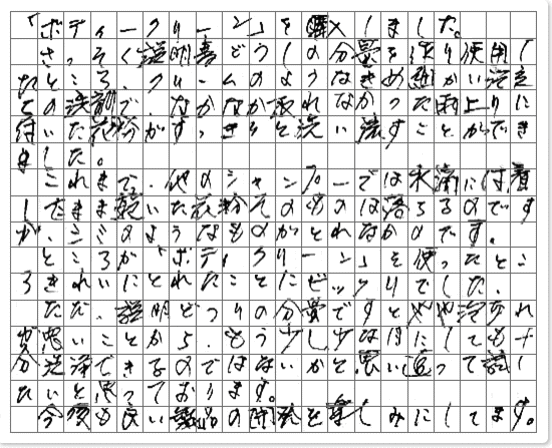 「ボディークリーン」を購入しました。
さっそく説明書どうりの分量を使い使用し
たところ、クリームのようなきめ細かい泡立
ちの洗剤で、なかなか取れなかった雨上りに
付いた花粉がすっきりと洗い流すことができ
ました。
これまで、他のシャンプーでは水滴には着
したまま乾いた花粉そのものは落ちるのです
が、シミのようなものがとれなかのです。
ところが「ボディクリーン」を使ったとこ
ろきれいにとれたことにビックリでした。
ただ、説明どうりの分量ですとやや泡切れ
が悪いことから、もう少し少な目にしても十
分洗浄できるのではないかと思い追って試し
たいと思っております。
今後も良い製品の開発を楽しみにしてます。